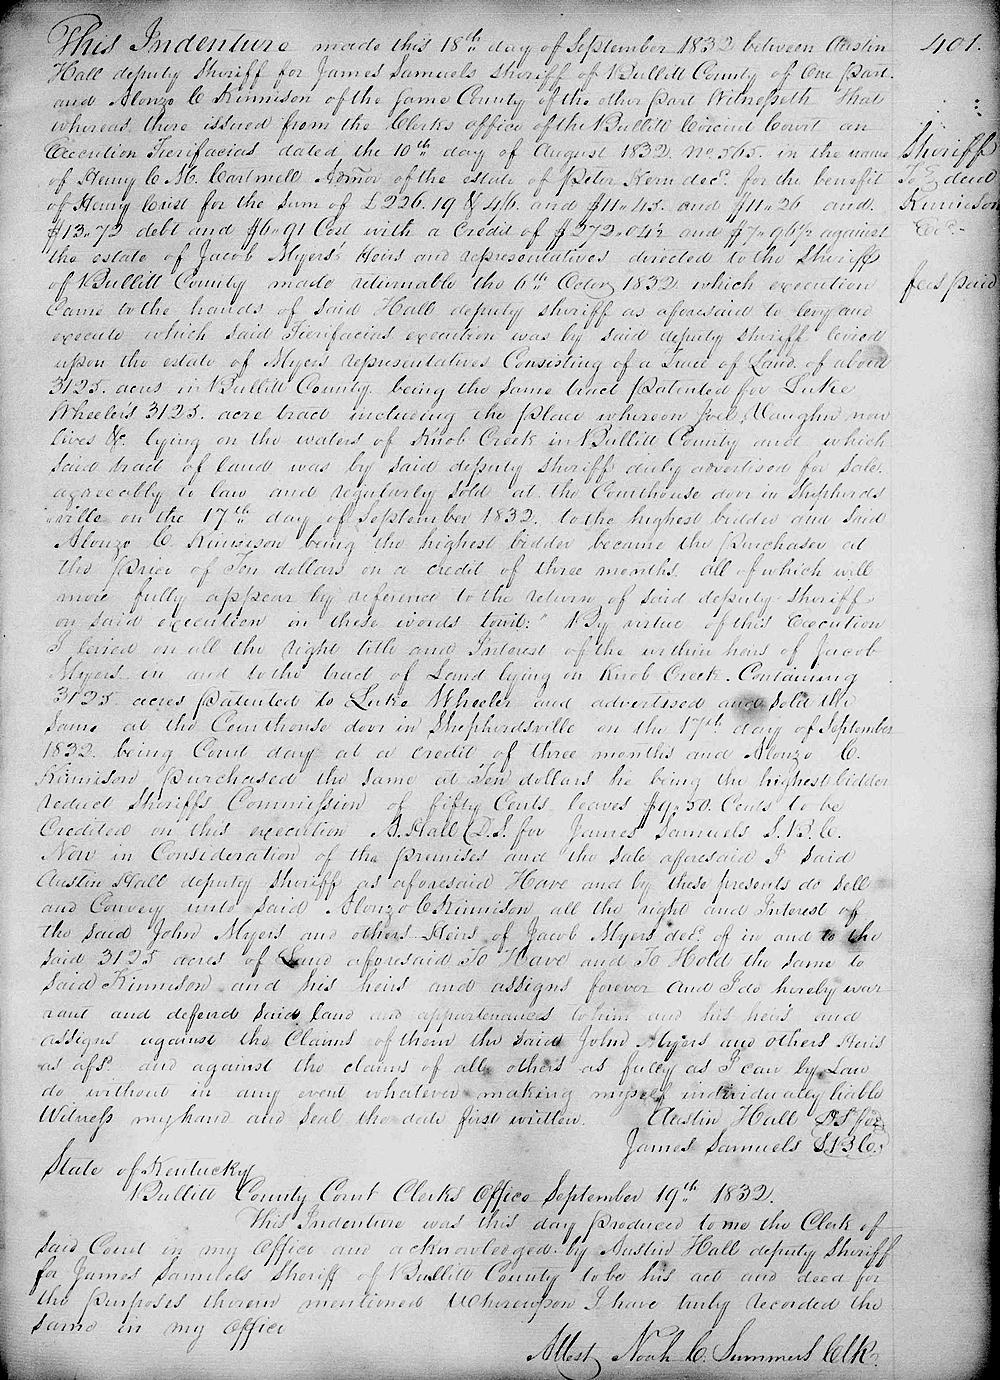 This Indenture made this 18th day of September 1832 between Austin
Hall deputy Sheriff for James Samuels Sheriff of Bullitt County of One part
and Alonzo C Kinnison of the Same County of the other part Witnesseth That
whereas there issued from the Clerks office of the Bullitt Circuit Court an
Execution Fierifacias dated the 10th day of August 1832. No. 565. in the name
of Henry C. M. Cartmell Admor of the estate of Peter Kern decd. for the benefit
of Henry Crist for the Sum of £226.19 & 4/6. and $11.45. and $11.26 and
$13.72 debt and $6.91 Cost with a Credit of $272.04½ and $7.96½ against
the estate of Jacob Myers's Heirs and representatives directed to the Sheriff
of Bullitt County made returnable the 6th Octor 1832 which execution
Came to the hands of Said Hall deputy Sheriff as aforesaid to levy and
execute which said Fierifacias execution was by said deputy Sheriff levied
upon the estate of Myers representatives Consisting of a Tract of Land of about
3125. acres in Bullitt County being the same tract patented for Luke
Wheelers 3125. acre tract including the place whereon Joel Vaughn now
lives &c lying on the waters of Knob Creek in Bullitt County and which
said tract of land was by said deputy Sheriff duly advertised for Sale
agreeably to law and regularly sold at the Courthouse door in Shepherds
ville on the 17th day of September 1832. to the highest bidder and said
Alonzo C. Kinnison being the highest bidder became the purchaser at
the price of Ten dollars on a credit of three months. all of which will
more fully appear by reference to the return of said deputy Sheriff
on said execution in these words towit: "By virtue of this Execution
I levied on all the right title and Interest of the within heirs of Jacob
Myers in and to the tract of Land lying on Knob Creek. Containing
3125 acres patented to Luke Wheeler and advertised and Sold the
Same at the Courthouse door in Shepherdsville on the 17th day of September
1832. being Court day at a credit of three months and Alonzo C.
Kinnison purchased the same at Ten dollars he being the highest bidder
deduct Sheriffs Commission of fifty Cents leaves $9.50. Cents to be
Credited on this execution A. Hall D.S. for James Samuels S.B.C.
Now in Consideration of the premises and the Sale aforesaid I Said
Austin Hall deputy Sheriff as aforesaid Have and by these presents do Sell
and Convey unto said Alonzo C Kinnison all the right and Interest of
the said John Myers and others Heirs of Jacob Myers decd. of in and to the
said 3125 acres of Land aforesaid To Have and To Hold the same to
said Kinnison and his heirs and assigns forever And I do hereby war
rant and defend said land and appurtenances to him and his heirs and
assigns against the Claims of them the said John Myers and others Heirs
as afsd. and against the claims of all others as fully as I can by Law
do without in any event whatever making myself individually liable
Witness my hand and seal the date first written. Austin Hall DS for
James Samuels SBC
State of Kentucky
Bullitt County Court Clerks Office September 19th 1832.
This Indenture was this day produced to me the Clerk of
said Court in my office and acknowledged by Austin Hall deputy Sheriff
for James Samuels Sheriff of Bullitt County to be his act and deed for
the purposes therein mentioned Whereupon I have truly recorded the
same in my office
Attest Noah C. Summers Clk.
401.
Sheriff
To } deed
Kinnison
fees paid